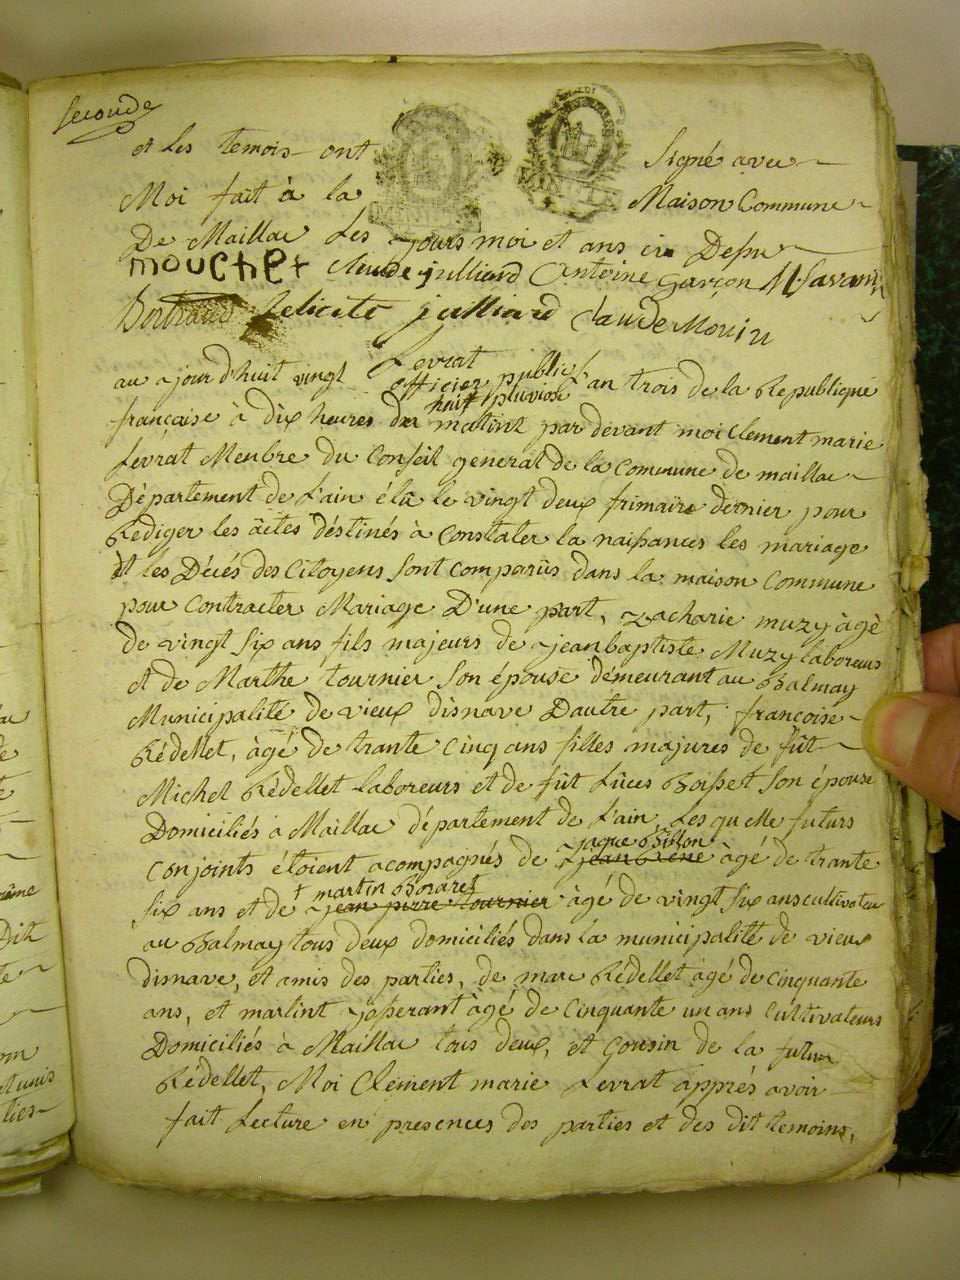 Seconde
et les temois ont signé avec
Moi fait à la Maison Commune
De Maillac les jours moi et ans
mouchet claude julliard Antoine garçon
Bertrand felicité julliard claude Monin
Levrat
officier public
au jourd'huit vingt huit pluviose l'an trois de la Republique
française à dix heures matint par devant moi Clement marie
Levrat Menbre du Conseil general de la Commune de maillac
Département de l'ain élû le vingt deux frimaire dernier pour
Rediger les actes déstinés à Constater la naissances les mariage
et les Décés des Citoyens sont comparûs dans la maison Commune
pour Contracter Mariage D'une part, zacharie muzy âgè
de vingt six ans fils majeurs de jean baptiste Muzy laboreurs
et de Marthe tournier son épouse démeurant au Balmay
Municipalité de vieux disnave D'autre part, françoise
Rédellet, àgé de trante cinq ans filles majures de fût
Michel Rédellet laboreurs et de fût Lûces Boisset son épouse
Domiciliés à Maillac département de l'ain, Les quelle futurs
conjoints étoient acompagnés de jaque Billon àgé de trante
six ans et de martin Bozaret àgé de vingt six ans cultivateur
au Balmay tous deux domiciliés dans la municipalité de vieux
disnave, et amis des parties, de marc Rédellet àgé de cinquante
ans, et martint josserant àgé de cinquante un ans Cultivateurs
Domiciliés à Maillac tous deux, et Cousin de la futur
Rédellet, Moi Clément marie Levrat apprés avoir
fait Lecture en presences des parties et des dit temoins,